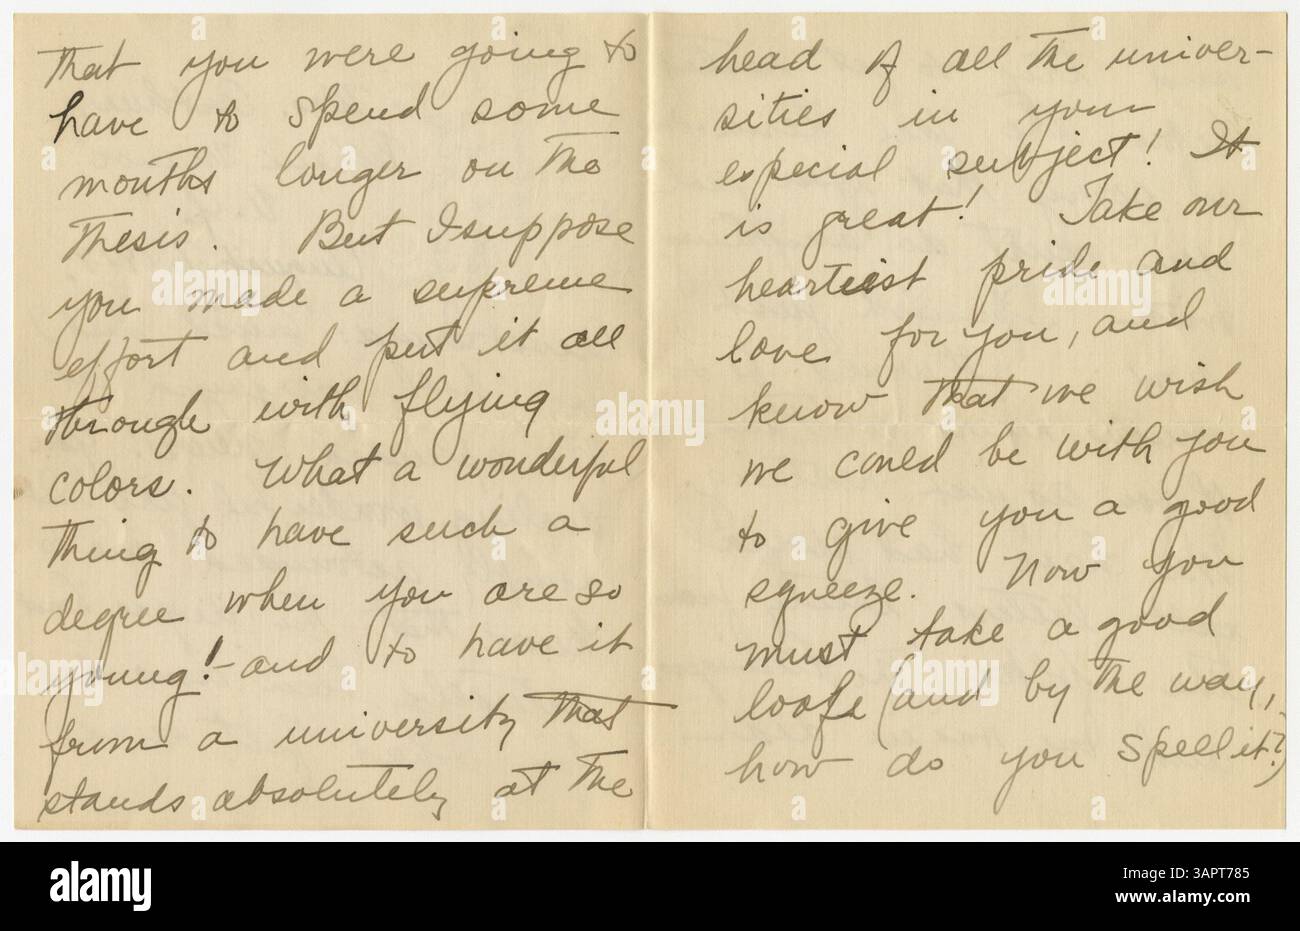 that you were going to
have to spend some
months longer on the
thesis. But I suppose
you made a supreme
effort and put it all
through with flying
colors. What a wonderful
thing to have such a
degree when you are so
young! – and to have it
from a university that
stands absolutely at the
head of all the univer-
sities in your
especial subject! It
is great! Take our
heartiest pride and
love for you, and
know that we wish
we could be with you
to give you a good
squeeze. Now you
must take a good
loafe (and by the way,
how do you spell it?)
alamy
Image ID: 3APT785
www.alamy.com